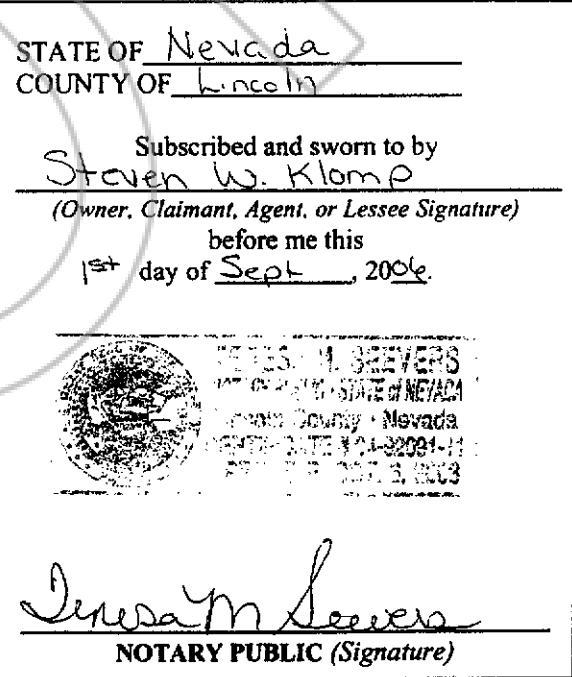 STATE OF Nevada
COUNTY OF Lincoln
Subscribed and sworn to by
Steven W. Klomp
(Owner, Claimant, Agent, or Lessee Signature)
before me this
1st day of Sept, 2006.
M. SEEVERS
STATE of NEVADA
County • Nevada
Teresa M Seevers
NOTARY PUBLIC (Signature)